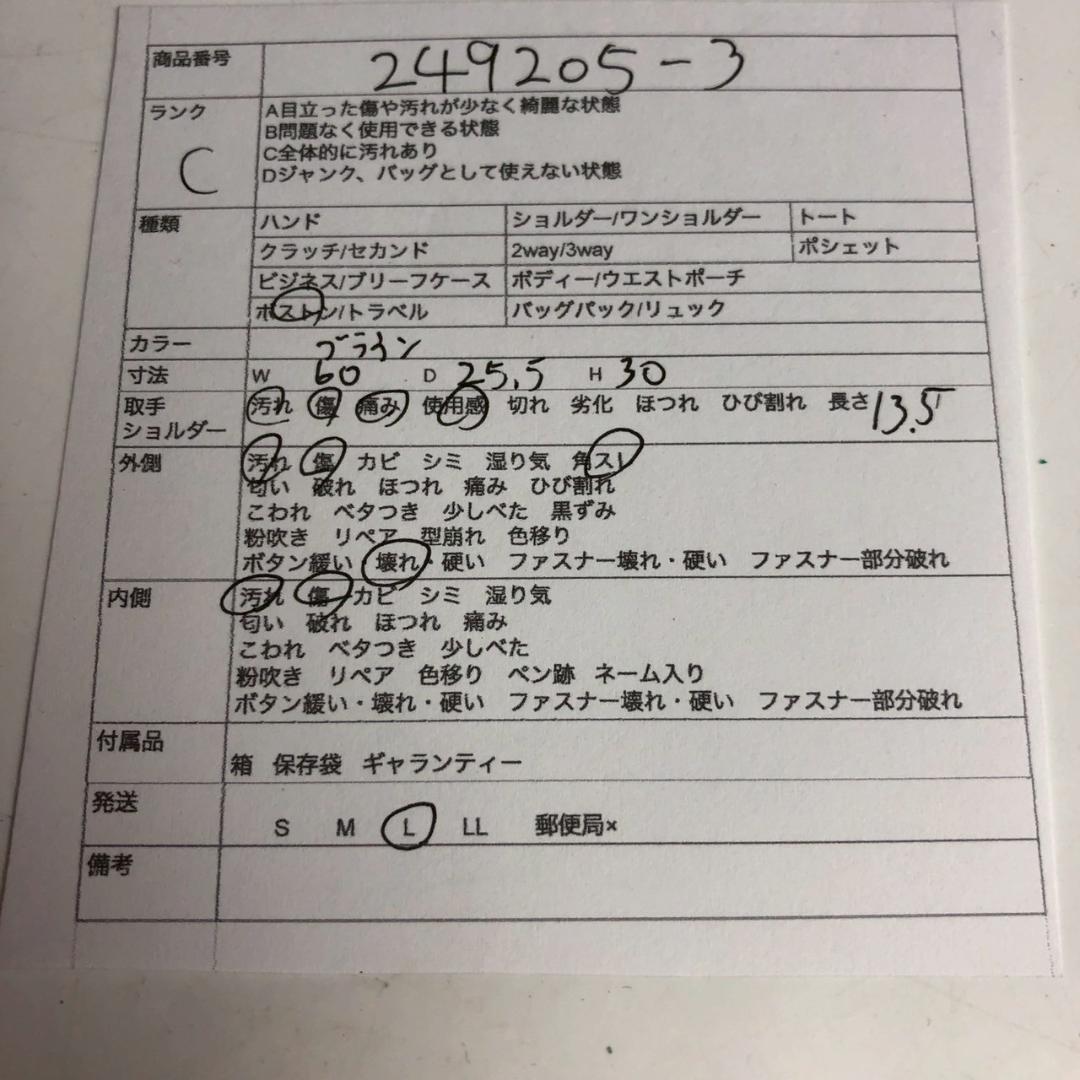 商品番号 249205-3
ランク C
A目立った傷や汚れが少なく綺麗な状態
B問題なく使用できる状態
C全体的に汚れあり
Dジャンク、バッグとして使えない状態
種類 ハンド ショルダー/ワンショルダー トート
クラッチ/セカンド 2way/3way ポシェット
ビジネス/ブリーフケース ボディー/ウエストポーチ
ボストン/トラベル バッグパック/リュック
カラー ブラウン
寸法 W 60 D 25.5 H 30
取手 汚れ 傷 痛み 使用感 切れ 劣化 ほつれ ひび割れ 長さ13.5
ショルダー
外側 汚れ 傷 カビ シミ 湿り気 角スレ
匂い 破れ ほつれ 痛み ひび割れ
こわれ ベタつき 少しべた 黒ずみ
粉吹き リペア 型崩れ 色移り
ボタン緩い・壊れ・硬い ファスナー壊れ・硬い ファスナー部分破れ
内側 汚れ 傷 カビ シミ 湿り気
匂い 破れ ほつれ 痛み
こわれ ベタつき 少しべた
粉吹き リペア 色移り ペン跡 ネーム入り
ボタン緩い・壊れ・硬い ファスナー壊れ・硬い ファスナー部分破れ
付属品 箱 保存袋 ギャランティー
発送 S M L LL 郵便局×
備考